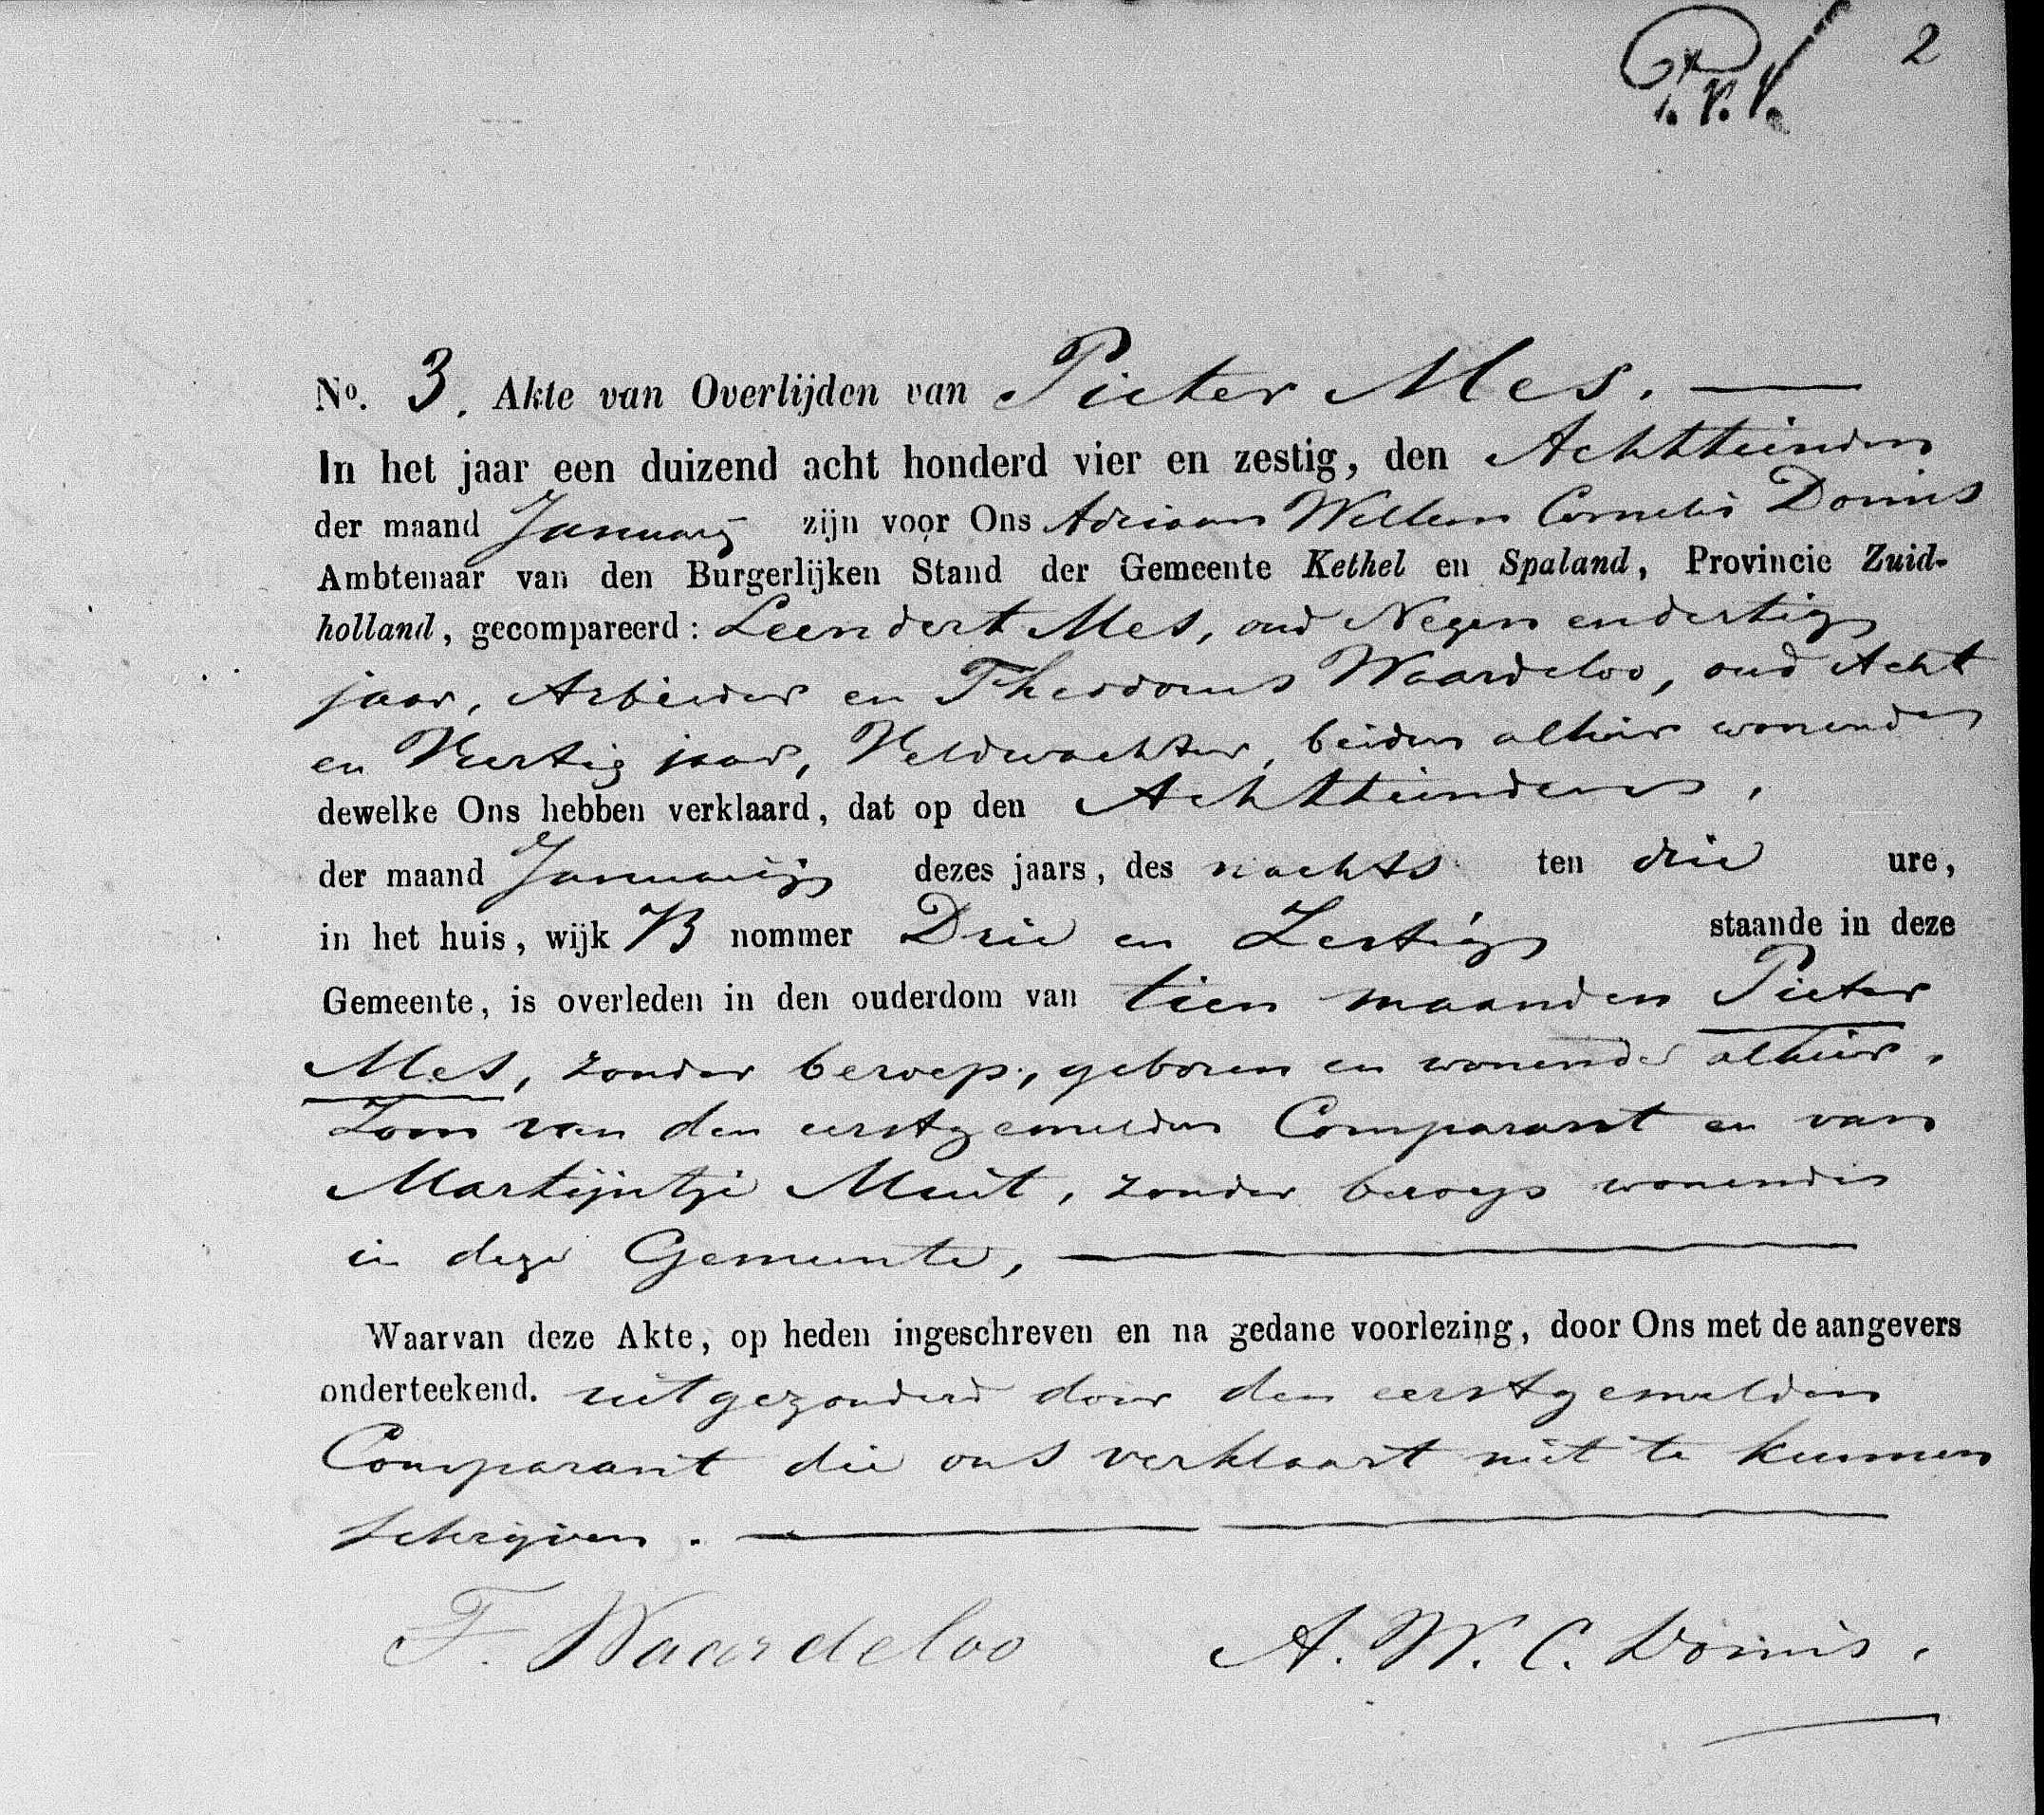 2
No. 3. Akte van Overlijden van Pieter Mes.
In het jaar een duizend acht honderd vier en zestig, den Achttienden
der maand Januarij zijn voor Ons Adriaan Willem Cornelis Domis
Ambtenaar van den Burgerlijken Stand der Gemeente Kethel en Spaland, Provincie Zuid-
holland, gecompareerd: Leendert Mes, oud Negen en dertig
jaar, Arbeider en Theodorus Waardeloo, oud Acht
en Veertig jaar, Veldwachter, beiden alhier wonende
dewelke Ons hebben verklaard, dat op den Achttienden,
der maand Januarij dezes jaars, des nachts ten drie ure,
in het huis, wijk B nommer Drie en Zestig staande in deze
Gemeente, is overleden in den ouderdom van tien maanden Pieter
Mes, zonder beroep, geboren en wonende alhier,
Zoon van den eerstgemelden Comparant en van
Martijntje Muit, zonder beroep wonende
in deze Gemeente,
Waarvan deze Akte, op heden ingeschreven en na gedane voorlezing, door Ons met de aangevers
onderteekend. uitgezonderd door den eerstgemelden
Comparant die ons verklaart niet te kunnen
schrijven.
T. Waardeloo A. W. C. Domis.